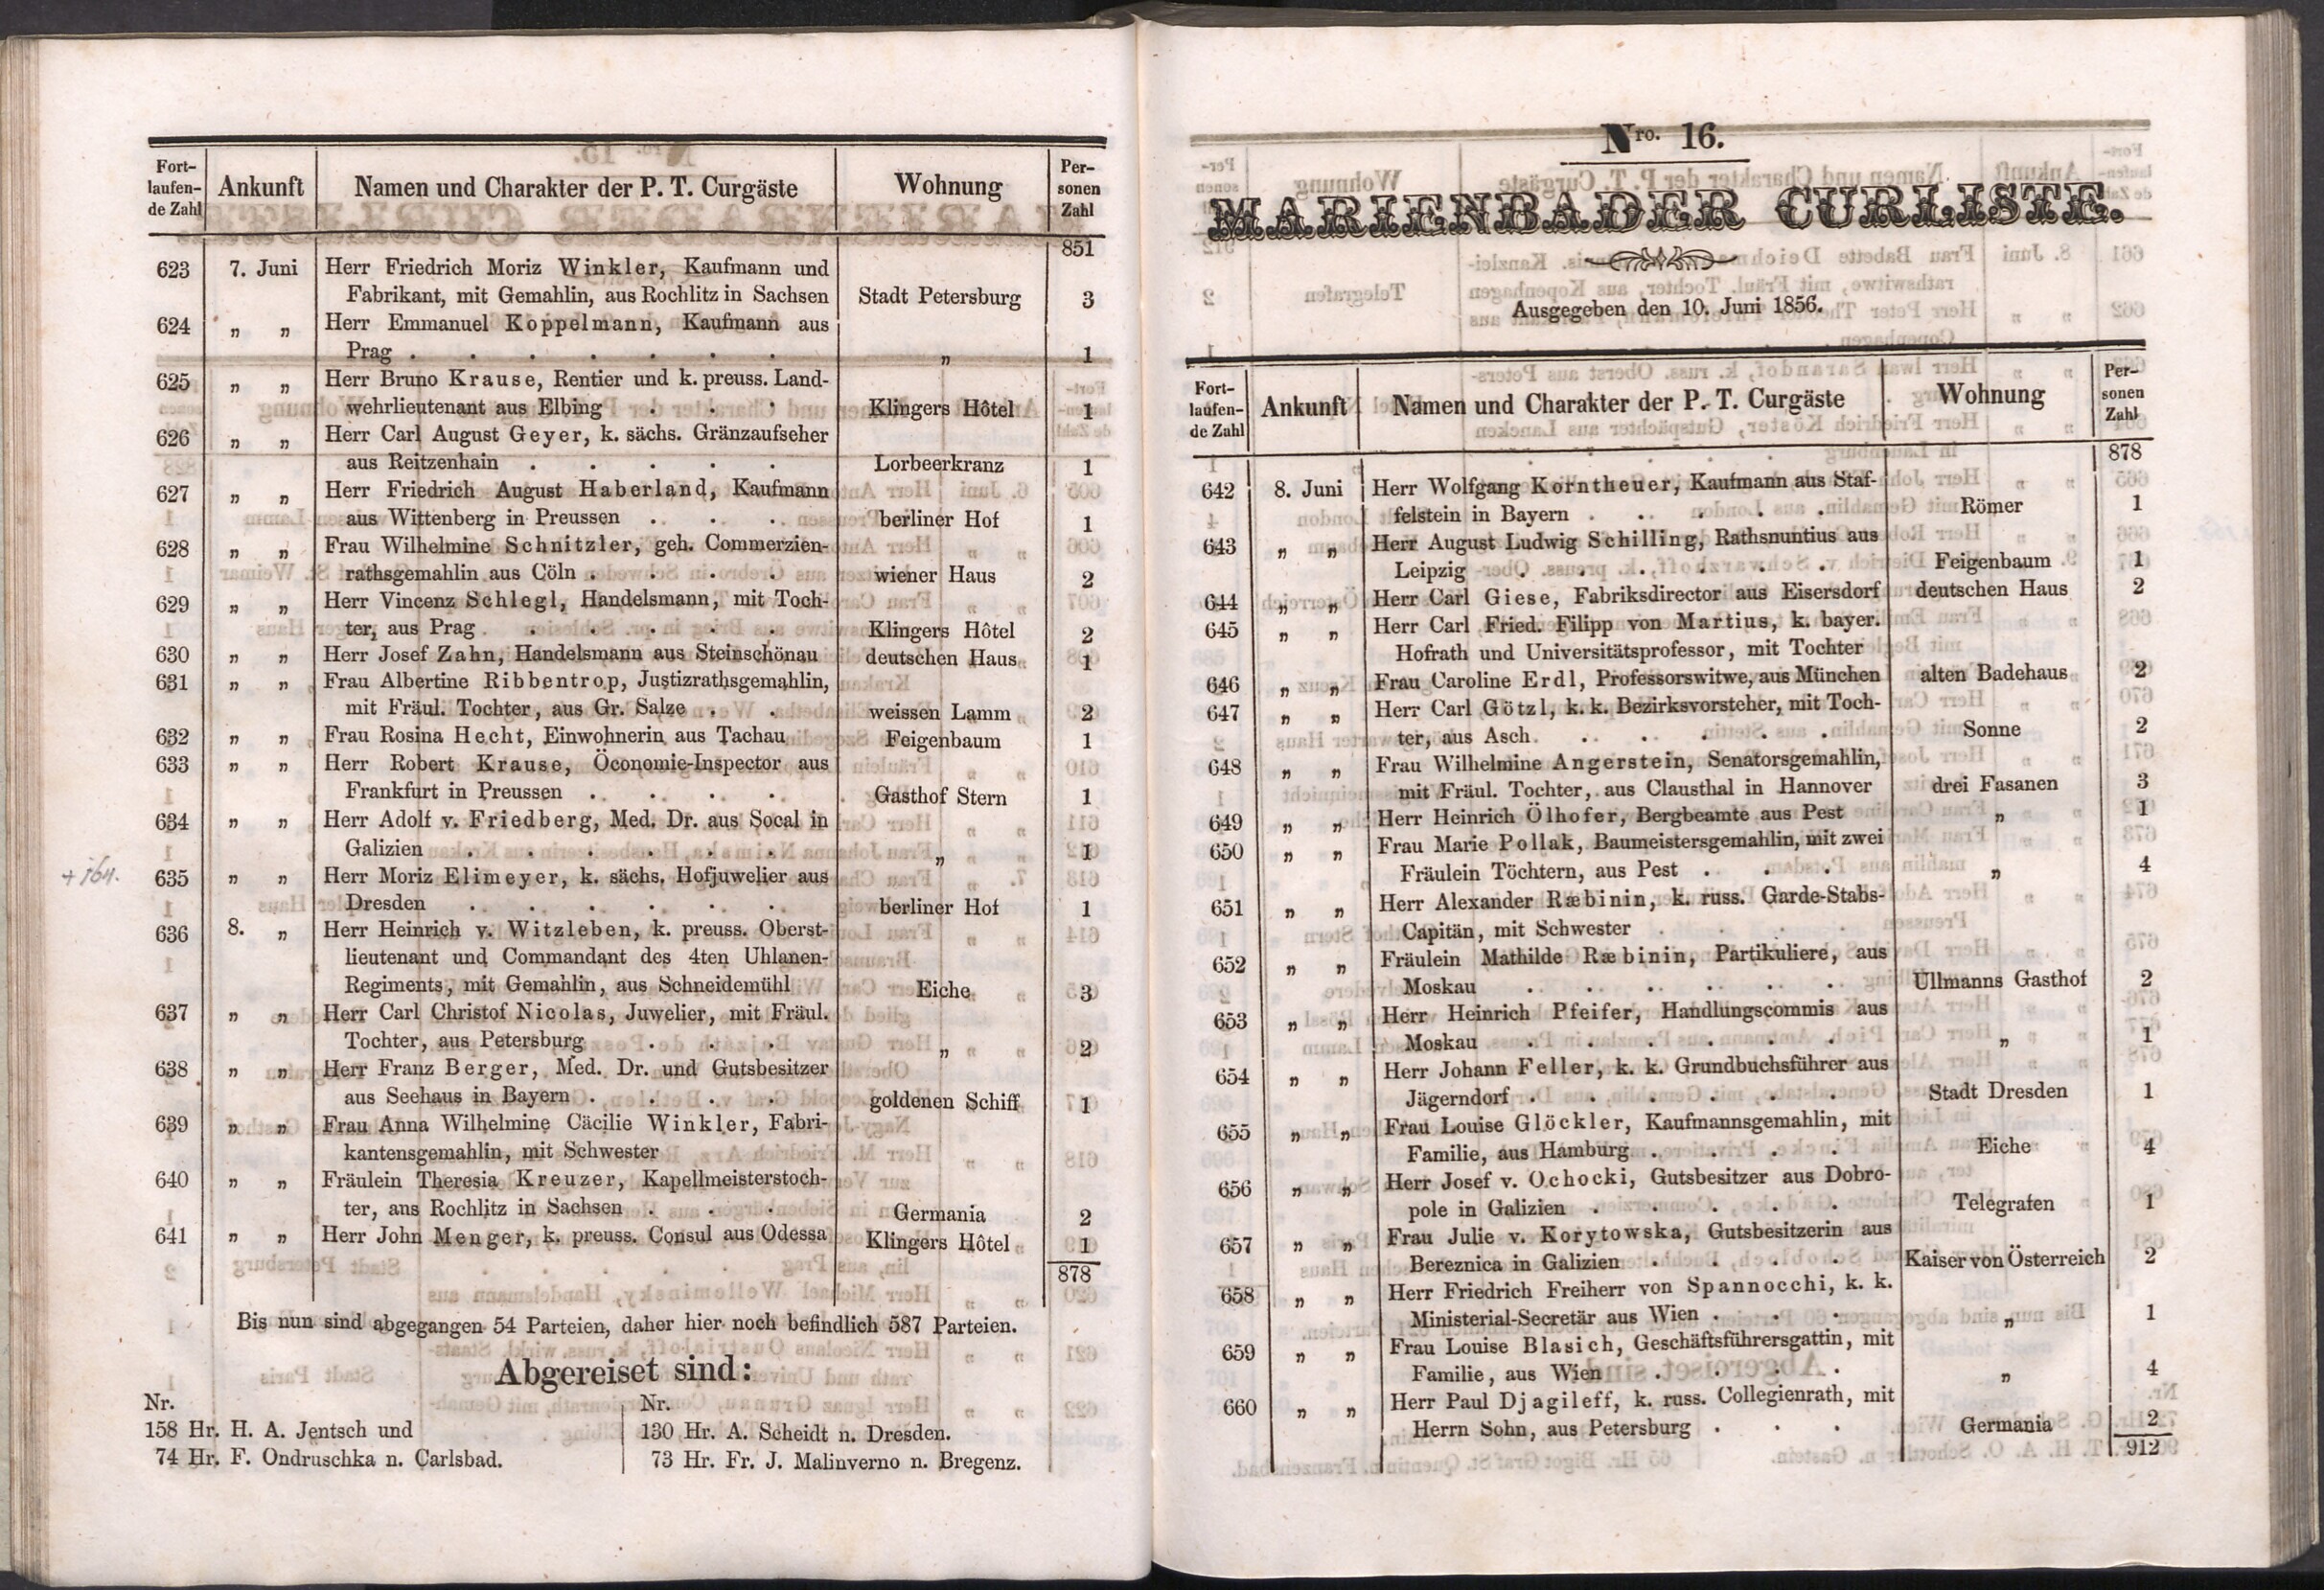 Fort-
laufen-
de Zahl
Ankunft
Namen und Charakter der P. T. Curgäste
Wohnung
Per-
sonen
Zahl
851
623 7. Juni Herr Friedrich Moriz Winkler, Kaufmann und
Fabrikant, mit Gemahlin, aus Rochlitz in Sachsen Stadt Petersburg 3
624 „ „ Herr Emmanuel Koppelmann, Kaufmann aus
Prag . . . . . . . „ 1
625 „ „ Herr Bruno Krause, Rentier und k. preuss. Land-
wehrlieutenant aus Elbing . . . Klingers Hôtel 1
626 „ „ Herr Carl August Geyer, k. sächs. Gränzaufseher
aus Reitzenhain . . . . . Lorbeerkranz 1
627 „ „ Herr Friedrich August Haberland, Kaufmann
aus Wittenberg in Preussen . . . berliner Hof 1
628 „ „ Frau Wilhelmine Schnitzler, geh. Commerzien-
rathsgemahlin aus Cöln . . . . wiener Haus 2
629 „ „ Herr Vincenz Schlegl, Handelsmann, mit Toch-
ter, aus Prag . . . . . Klingers Hôtel 2
630 „ „ Herr Josef Zahn, Handelsmann aus Steinschönau deutschen Haus 1
631 „ „ Frau Albertine Ribbentrop, Justizrathsgemahlin,
mit Fräul. Tochter, aus Gr. Salze . . weissen Lamm 2
632 „ „ Frau Rosina Hecht, Einwohnerin aus Tachau Feigenbaum 1
633 „ „ Herr Robert Krause, Öconomie-Inspector aus
Frankfurt in Preussen . . . . Gasthof Stern 1
634 „ „ Herr Adolf v. Friedberg, Med. Dr. aus Socal in
Galizien . . . . . . „ 1
635 „ „ Herr Moriz Elimeyer, k. sächs. Hofjuwelier aus
Dresden . . . . . . berliner Hof 1
636 8. „ Herr Heinrich v. Witzleben, k. preuss. Oberst-
lieutenant und Commandant des 4ten Uhlanen-
Regiments, mit Gemahlin, aus Schneidemühl Eiche 3
637 „ „ Herr Carl Christof Nicolas, Juwelier, mit Fräul.
Tochter, aus Petersburg . . . „ 2
638 „ „ Herr Franz Berger, Med. Dr. und Gutsbesitzer
aus Seehaus in Bayern . . . . goldenen Schiff 1
639 „ „ Frau Anna Wilhelmine Cäcilie Winkler, Fabri-
kantensgemahlin, mit Schwester
640 „ „ Fräulein Theresia Kreuzer, Kapellmeisterstoch-
ter, aus Rochlitz in Sachsen . . . Germania 2
641 „ „ Herr John Menger, k. preuss. Consul aus Odessa Klingers Hôtel 1
878
Bis nun sind abgegangen 54 Parteien, daher hier noch befindlich 587 Parteien.
Abgereiset sind:
Nr.
158 Hr. H. A. Jentsch und
74 Hr. F. Ondruschka n. Carlsbad.
Nr.
130 Hr. A. Scheidt n. Dresden.
73 Hr. Fr. J. Malinverno n. Bregenz.
Nro. 16.
MARIENBADER CURLISTE.
Ausgegeben den 10. Juni 1856.
Fort-
laufen-
de Zahl
Ankunft
Namen und Charakter der P. T. Curgäste
Wohnung
Per-
sonen
Zahl
878
642 8. Juni Herr Wolfgang Korntheuer, Kaufmann aus Staf-
felstein in Bayern . . . . . Römer 1
643 „ „ Herr August Ludwig Schilling, Rathsnuntius aus
Leipzig . . . . . . Feigenbaum 1
644 „ „ Herr Carl Giese, Fabriksdirector aus Eisersdorf deutschen Haus 2
645 „ „ Herr Carl Fried. Filipp von Martius, k. bayer.
Hofrath und Universitätsprofessor, mit Tochter
646 „ „ Frau Caroline Erdl, Professorswitwe, aus München alten Badehaus 2
647 „ „ Herr Carl Götzl, k. k. Bezirksvorsteher, mit Toch-
ter, aus Asch . . . . . Sonne 2
648 „ „ Frau Wilhelmine Angerstein, Senatorsgemahlin,
mit Fräul. Tochter, aus Clausthal in Hannover drei Fasanen 3
649 „ „ Herr Heinrich Ölhofer, Bergbeamte aus Pest „ 1
650 „ „ Frau Marie Pollak, Baumeistersgemahlin, mit zwei
Fräulein Töchtern, aus Pest . . . „ 4
651 „ „ Herr Alexander Ræbinin, k. russ. Garde-Stabs-
Capitän, mit Schwester
652 „ „ Fräulein Mathilde Ræbinin, Partikuliere, aus
Moskau . . . . . . Ullmanns Gasthof 2
653 „ „ Herr Heinrich Pfeifer, Handlungscommis aus
Moskau . . . . . . „ 1
654 „ „ Herr Johann Feller, k. k. Grundbuchsführer aus
Jägerndorf . . . . . . Stadt Dresden 1
655 „ „ Frau Louise Glöckler, Kaufmannsgemahlin, mit
Familie, aus Hamburg . . . . Eiche 4
656 „ „ Herr Josef v. Ochocki, Gutsbesitzer aus Dobro-
pole in Galizien . . . . . Telegrafen 1
657 „ „ Frau Julie v. Korytowska, Gutsbesitzerin aus
Bereznica in Galizien . . . . Kaiser von Österreich 2
658 „ „ Herr Friedrich Freiherr von Spannocchi, k. k.
Ministerial-Secretär aus Wien . . . „ 1
659 „ „ Frau Louise Blasich, Geschäftsführersgattin, mit
Familie, aus Wien . . . . „ 4
660 „ „ Herr Paul Djagileff, k. russ. Collegienrath, mit
Herrn Sohn, aus Petersburg . . . Germania 2
912